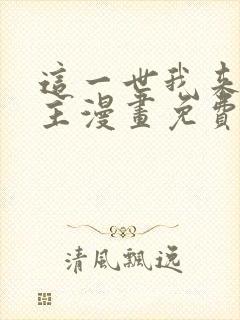 這一世我來
主漫畫免費
清風飄逸